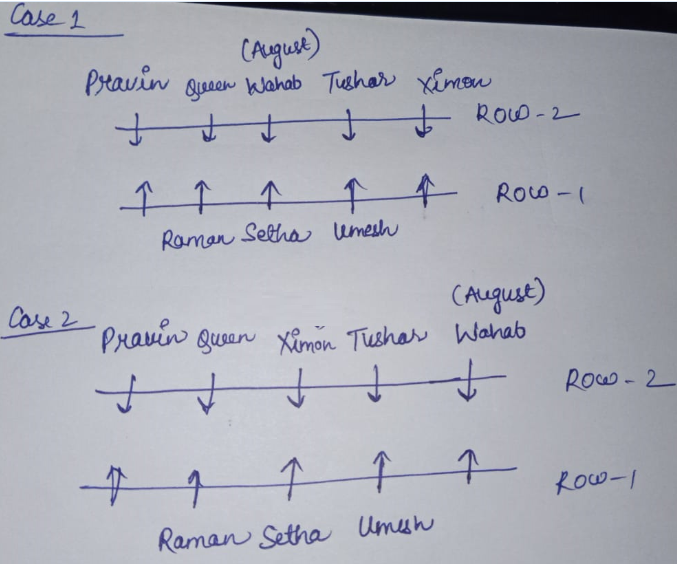 Case 1
(August)
Pravin Queen Wahab Tushar Ximon
Row-2
Row-1
Raman Setha Umesh
Case 2
(August)
Pravin Queen Ximon Tushar Wahab
Row-2
Row-1
Raman Setha Umesh